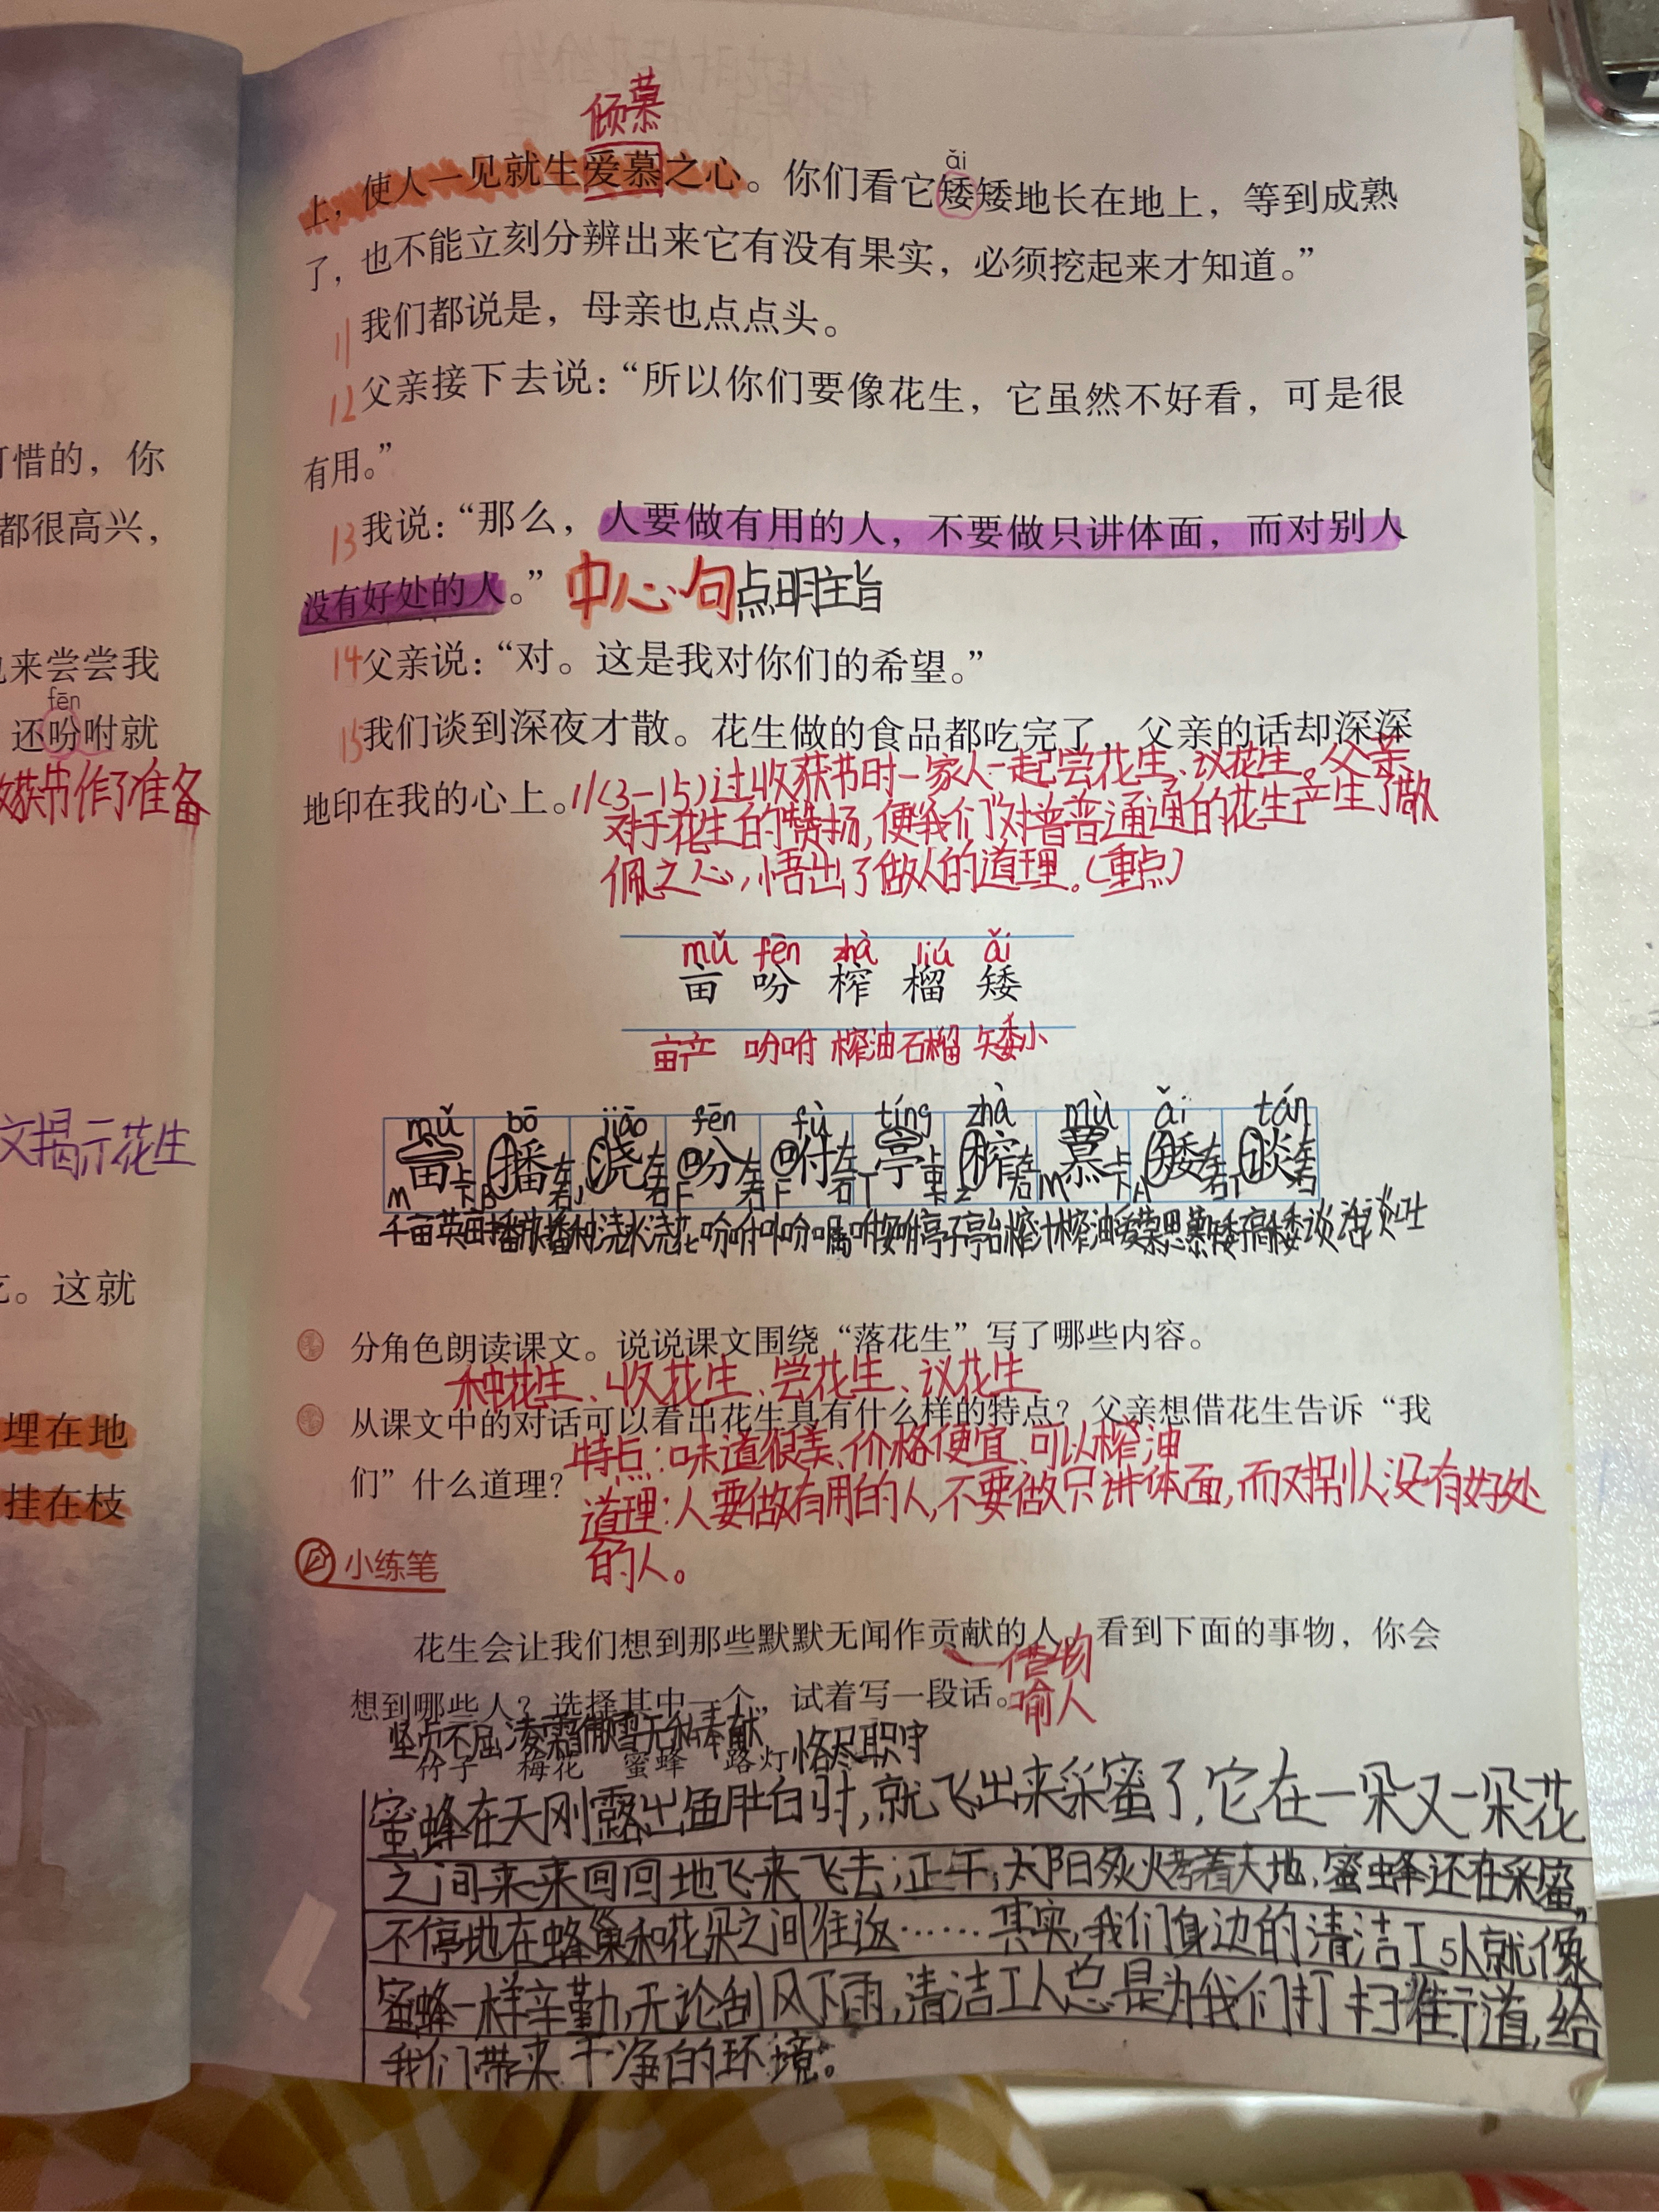 可惜的，你
都很高兴，
来尝尝我
fēn
还吩咐就
收获节作了准备
文揭示花生
。这就
埋在地
挂在枝
倾慕
ǎi
上，使人一见就生爱慕之心。你们看它矮矮地长在地上，等到成熟
了，也不能立刻分辨出来它有没有果实，必须挖起来才知道。”
11 我们都说是，母亲也点点头。
12 父亲接下去说：“所以你们要像花生，它虽然不好看，可是很
有用。”
13 我说：“那么，人要做有用的人，不要做只讲体面，而对别人
没有好处的人。” 中心句 点明主旨
14 父亲说：“对。这是我对你们的希望。”
15 我们谈到深夜才散。花生做的食品都吃完了，父亲的话却深深
地印在我的心上。 //(3-15)过收获节时一家人一起尝花生、议花生。父亲
对于花生的赞扬,便我们对普普通通的花生产生了敬
佩之心,悟出了做人的道理。(重点)
mǔ fēn zhà liú ǎi
亩 吩 榨 榴 矮
亩产 吩咐 榨油 石榴 矮小
mǔ bō jiāo fēn fù tíng zhà mù ǎi tán
亩 播 浇 吩 咐 亭 榨 慕 矮 谈
千亩英亩播放播种浇水浇花吩咐吩嘱咐亭子亭台榨汁榨油爱慕思慕矮高矮谈话谈吐
分角色朗读课文。说说课文围绕“落花生”写了哪些内容。
种花生、收花生、尝花生、议花生
从课文中的对话可以看出花生具有什么样的特点？父亲想借花生告诉“我
特点:味道很美、价格便宜、可以榨油
们”什么道理？
道理:人要做有用的人,不要做只讲体面,而对别人没有好处
的人。
小练笔
花生会让我们想到那些默默无闻作贡献的人。看到下面的事物，你会
借物
想到哪些人？选择其中一个，试着写一段话。
喻人
坚贞不屈 凌霜傲雪 无私奉献 恪尽职守
竹子 梅花 蜜蜂 路灯
蜜蜂在天刚露出鱼肚白时,就飞出来采蜜了,它在一朵又一朵花
之间来来回回地飞来飞去;正午,太阳炙烤着大地,蜜蜂还在采蜜,
不停地在蜂巢和花朵之间往返……其实,我们身边的清洁工人就像
蜜蜂一样辛勤,无论刮风下雨,清洁工人总是为我们打扫街道,给
我们带来干净的环境。